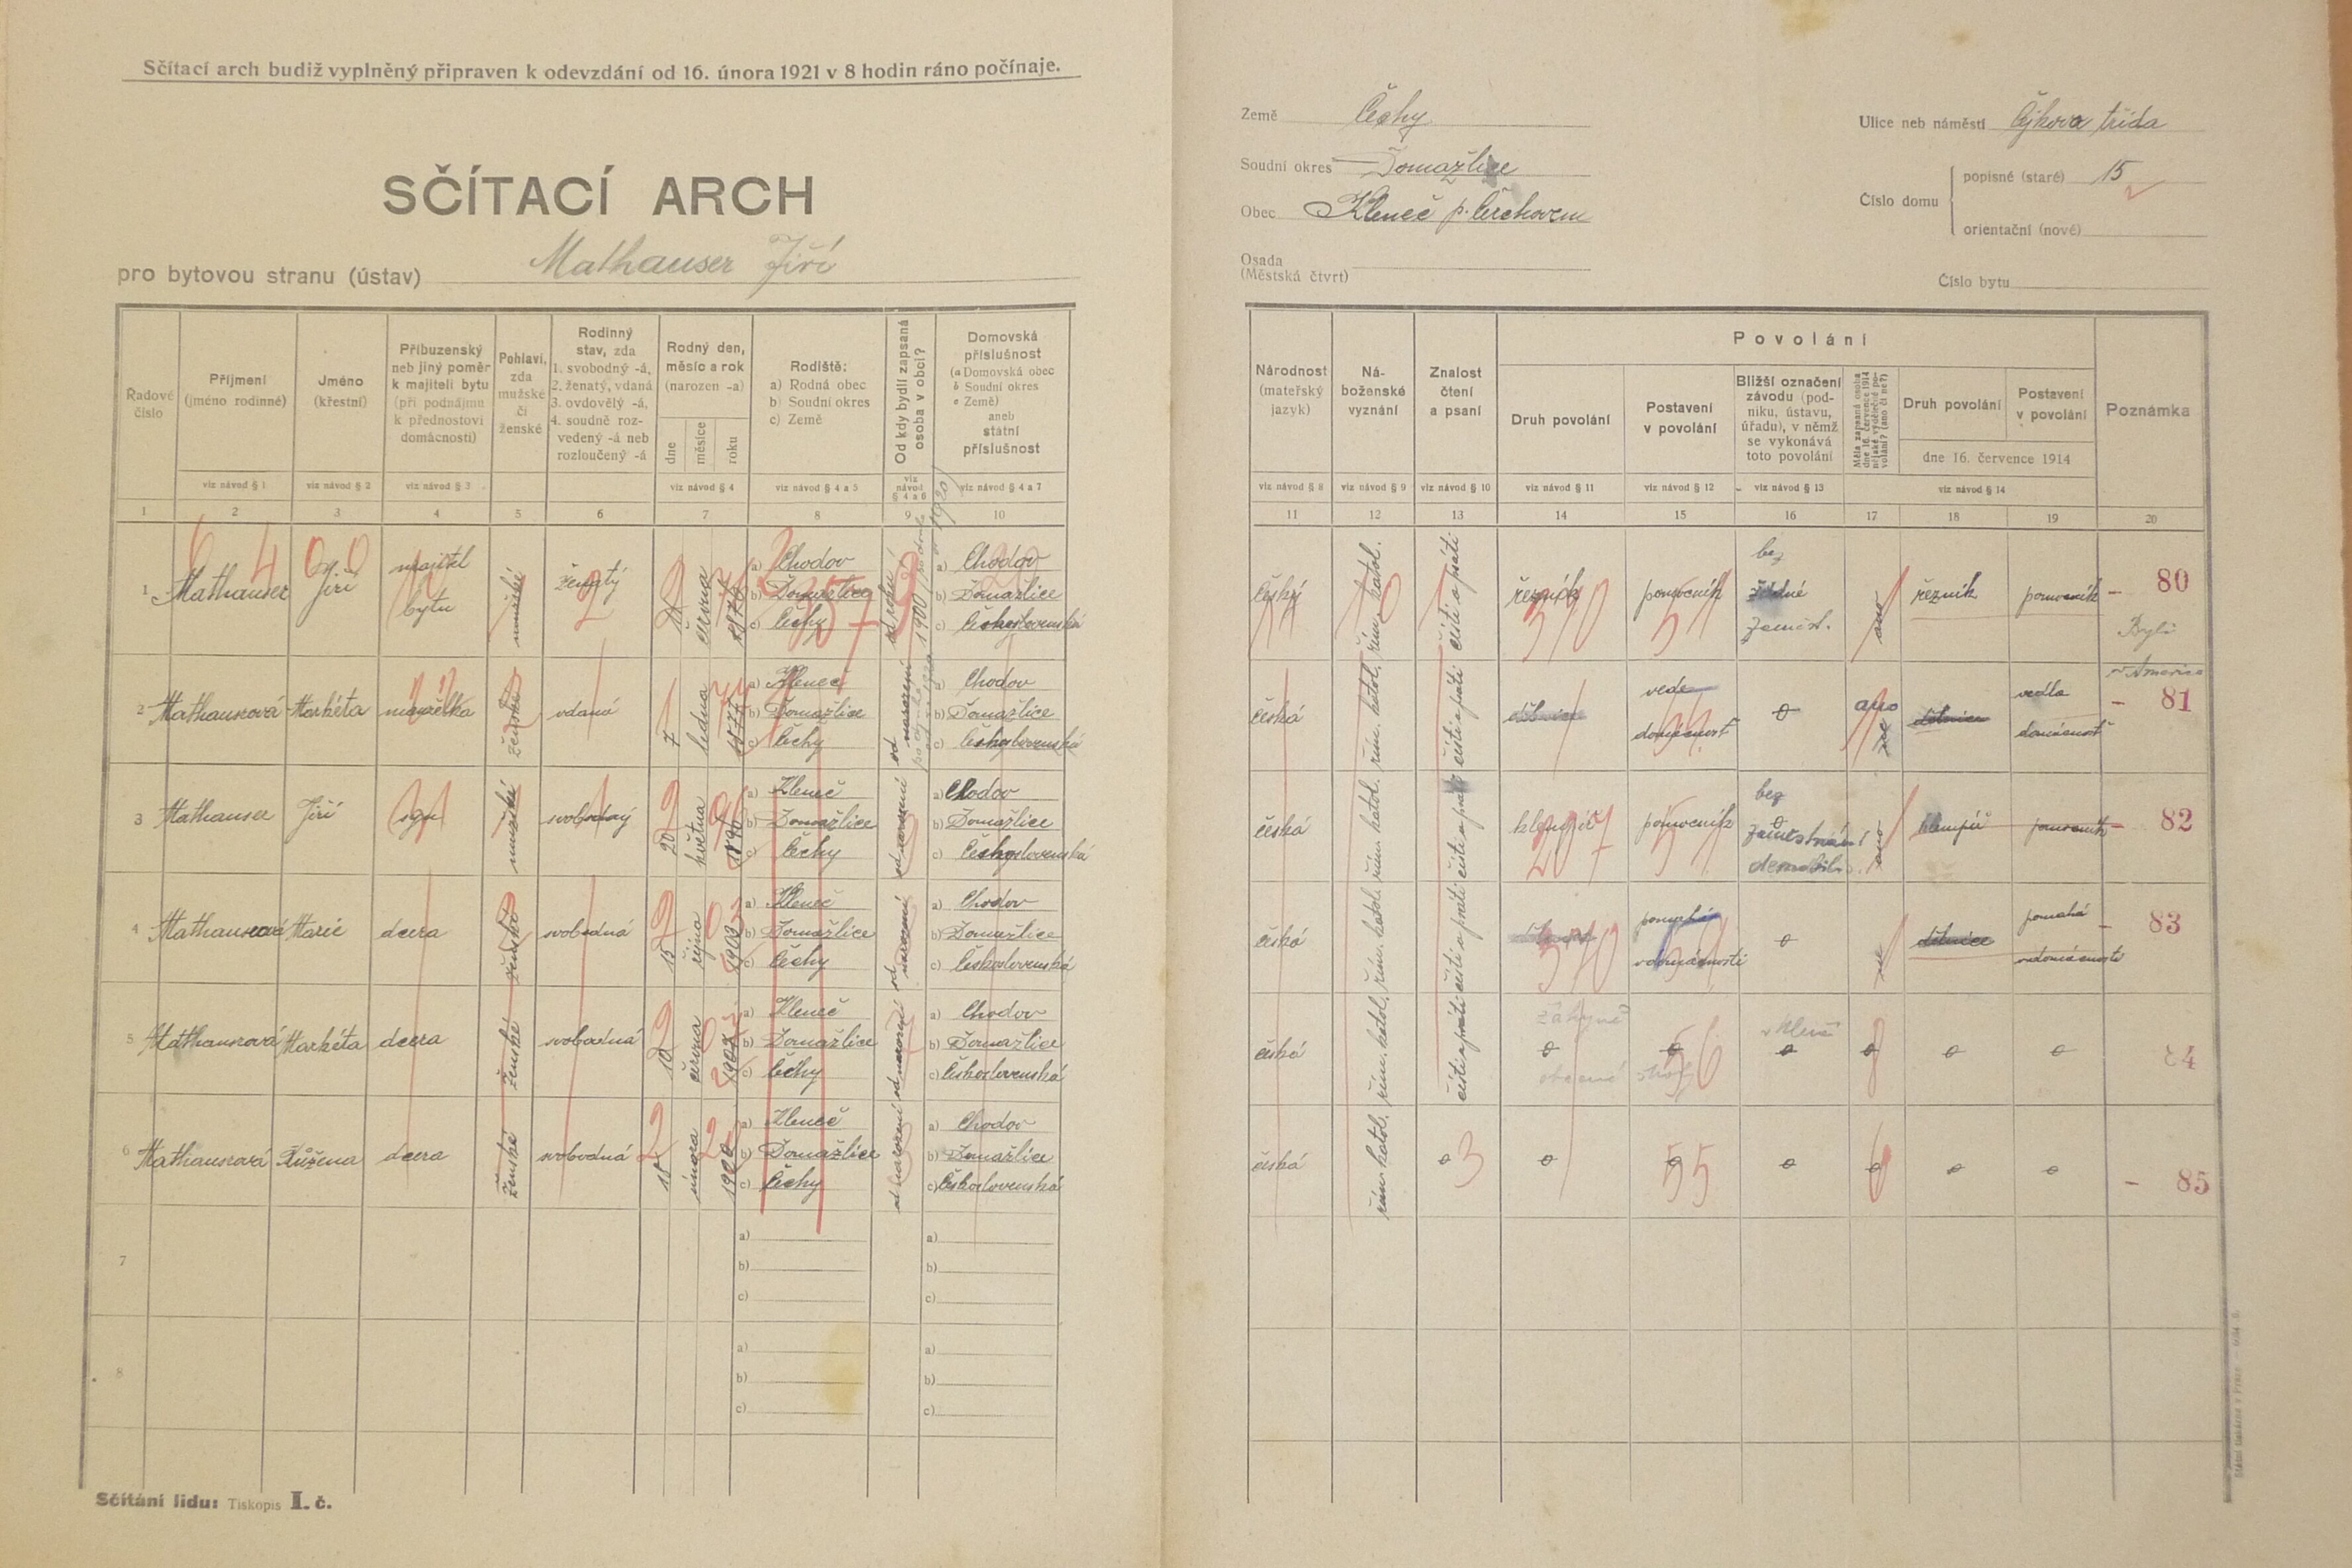 Sčítací arch budiž vyplněný připraven k odevzdání od 16. února 1921 v 8 hodin ráno počínaje.
SČÍTACÍ ARCH
pro bytovou stranu (ústav) Mathauser Jiří
Země Čechy
Soudní okres Domažlice
Obec Kleneč p. Čerchovem
Osada
(Městská čtvrt)
Ulice neb náměstí Čejkova třída
Číslo domu
popisné (staré) 15
orientační (nové)
Číslo bytu
Řadové číslo
Příjmení (jméno rodinné)
Jméno (křestní)
Příbuzenský neb jiný poměr k majiteli bytu (při podnájmu k přednostovi domácnosti)
Pohlaví, zda mužské či ženské
Rodinný stav, zda 1. svobodný -á, 2. ženatý, vdaná 3. ovdovělý -á, 4. soudně rozvedený -á neb rozloučený -á
Rodný den, měsíc a rok (narozen -a)
dne měsíce roku
Rodiště: a) Rodná obec b) Soudní okres c) Země
Od kdy bydlí zapsaná osoba v obci?
Domovská příslušnost (a Domovská obec b Soudní okres c Země) aneb státní příslušnost
viz návod § 1 viz návod § 2 viz návod § 3 viz návod § 4 viz návod § 4 a 5 viz návod § 4 a 6 viz návod § 4 a 7
1 2 3 4 5 6 7 8 9 10
Národnost (mateřský jazyk)
Náboženské vyznání
Znalost čtení a psaní
Povolání
Druh povolání
Postavení v povolání
Bližší označení závodu (podniku, ústavu, úřadu), v němž se vykonává toto povolání
Měla zapsaná osoba dne 16. července 1914 nějaké výdělečné povolání? (ano či ne?)
Druh povolání
Postavení v povolání
dne 16. července 1914
Poznámka
viz návod § 8 viz návod § 9 viz návod § 10 viz návod § 11 viz návod § 12 viz návod § 13 viz návod § 14
11 12 13 14 15 16 17 18 19 20
1 Mathauser Jiří majitel bytu mužské ženatý června
a) Chodov
b) Domažlice
c) Čechy
od roku 1900
a) Chodov
b) Domažlice
c) Československá
řím. katol. čísti a psáti řezník pomocník bez
zaměst. ano řezník pomocník 80
Byli
v Americe
2 Mathauserová Markéta manželka ženské vdaná 7 ledna 1877
a) Kleneč
b) Domažlice
c) Čechy
od narození
a) Chodov
b) Domažlice
c) Československá
česká řím. katol. čísti a psáti dělnice vede domácnosť 0 ano ne dělnice vedla domácnosť 81
3 Mathauser Jiří syn mužské svobodný 20 května
a) Kleneč
b) Domažlice
c) Čechy
od narození
a) Chodov
b) Domažlice
c) Československá
česká řím. katol. čísti a psáti klempíř pomocník bez zaměstnání demobil. ano klempíř pomocník 82
4 Mathauserová Marie dcera ženské svobodná 15 října 1903
a) Kleneč
b) Domažlice
c) Čechy
od narození
a) Chodov
b) Domažlice
c) Československá
česká řím. katol. čísti a psáti pomáhá v domácnosti 0 ne dělnice pomáhá v domácnosti 83
5 Mathauserová Markéta dcera ženské svobodná 10 června
a) Kleneč
b) Domažlice
c) Čechy
od narození
a) Chodov
b) Domažlice
c) Československá
česká řím. katol. čísti a psáti 0 0 v Klenči 0 0 0 0 84
6 Mathauserová Růžena dcera ženské svobodná února 1920
a) Kleneč
b) Domažlice
c) Čechy
od narození
a) Chodov
b) Domažlice
c) Československá
česká řím. katol. 0 0 0 0 0 0 0 85
7
a)
b)
c)
a)
b)
c)
8
a)
b)
c)
a)
b)
c)
Sčítání lidu: Tiskopis I. č.